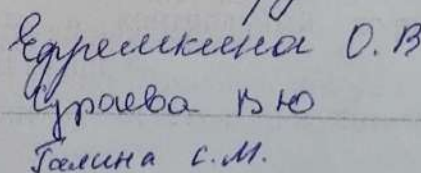 Ефремкина О.В
Сураева В Ю
Галина С.М.